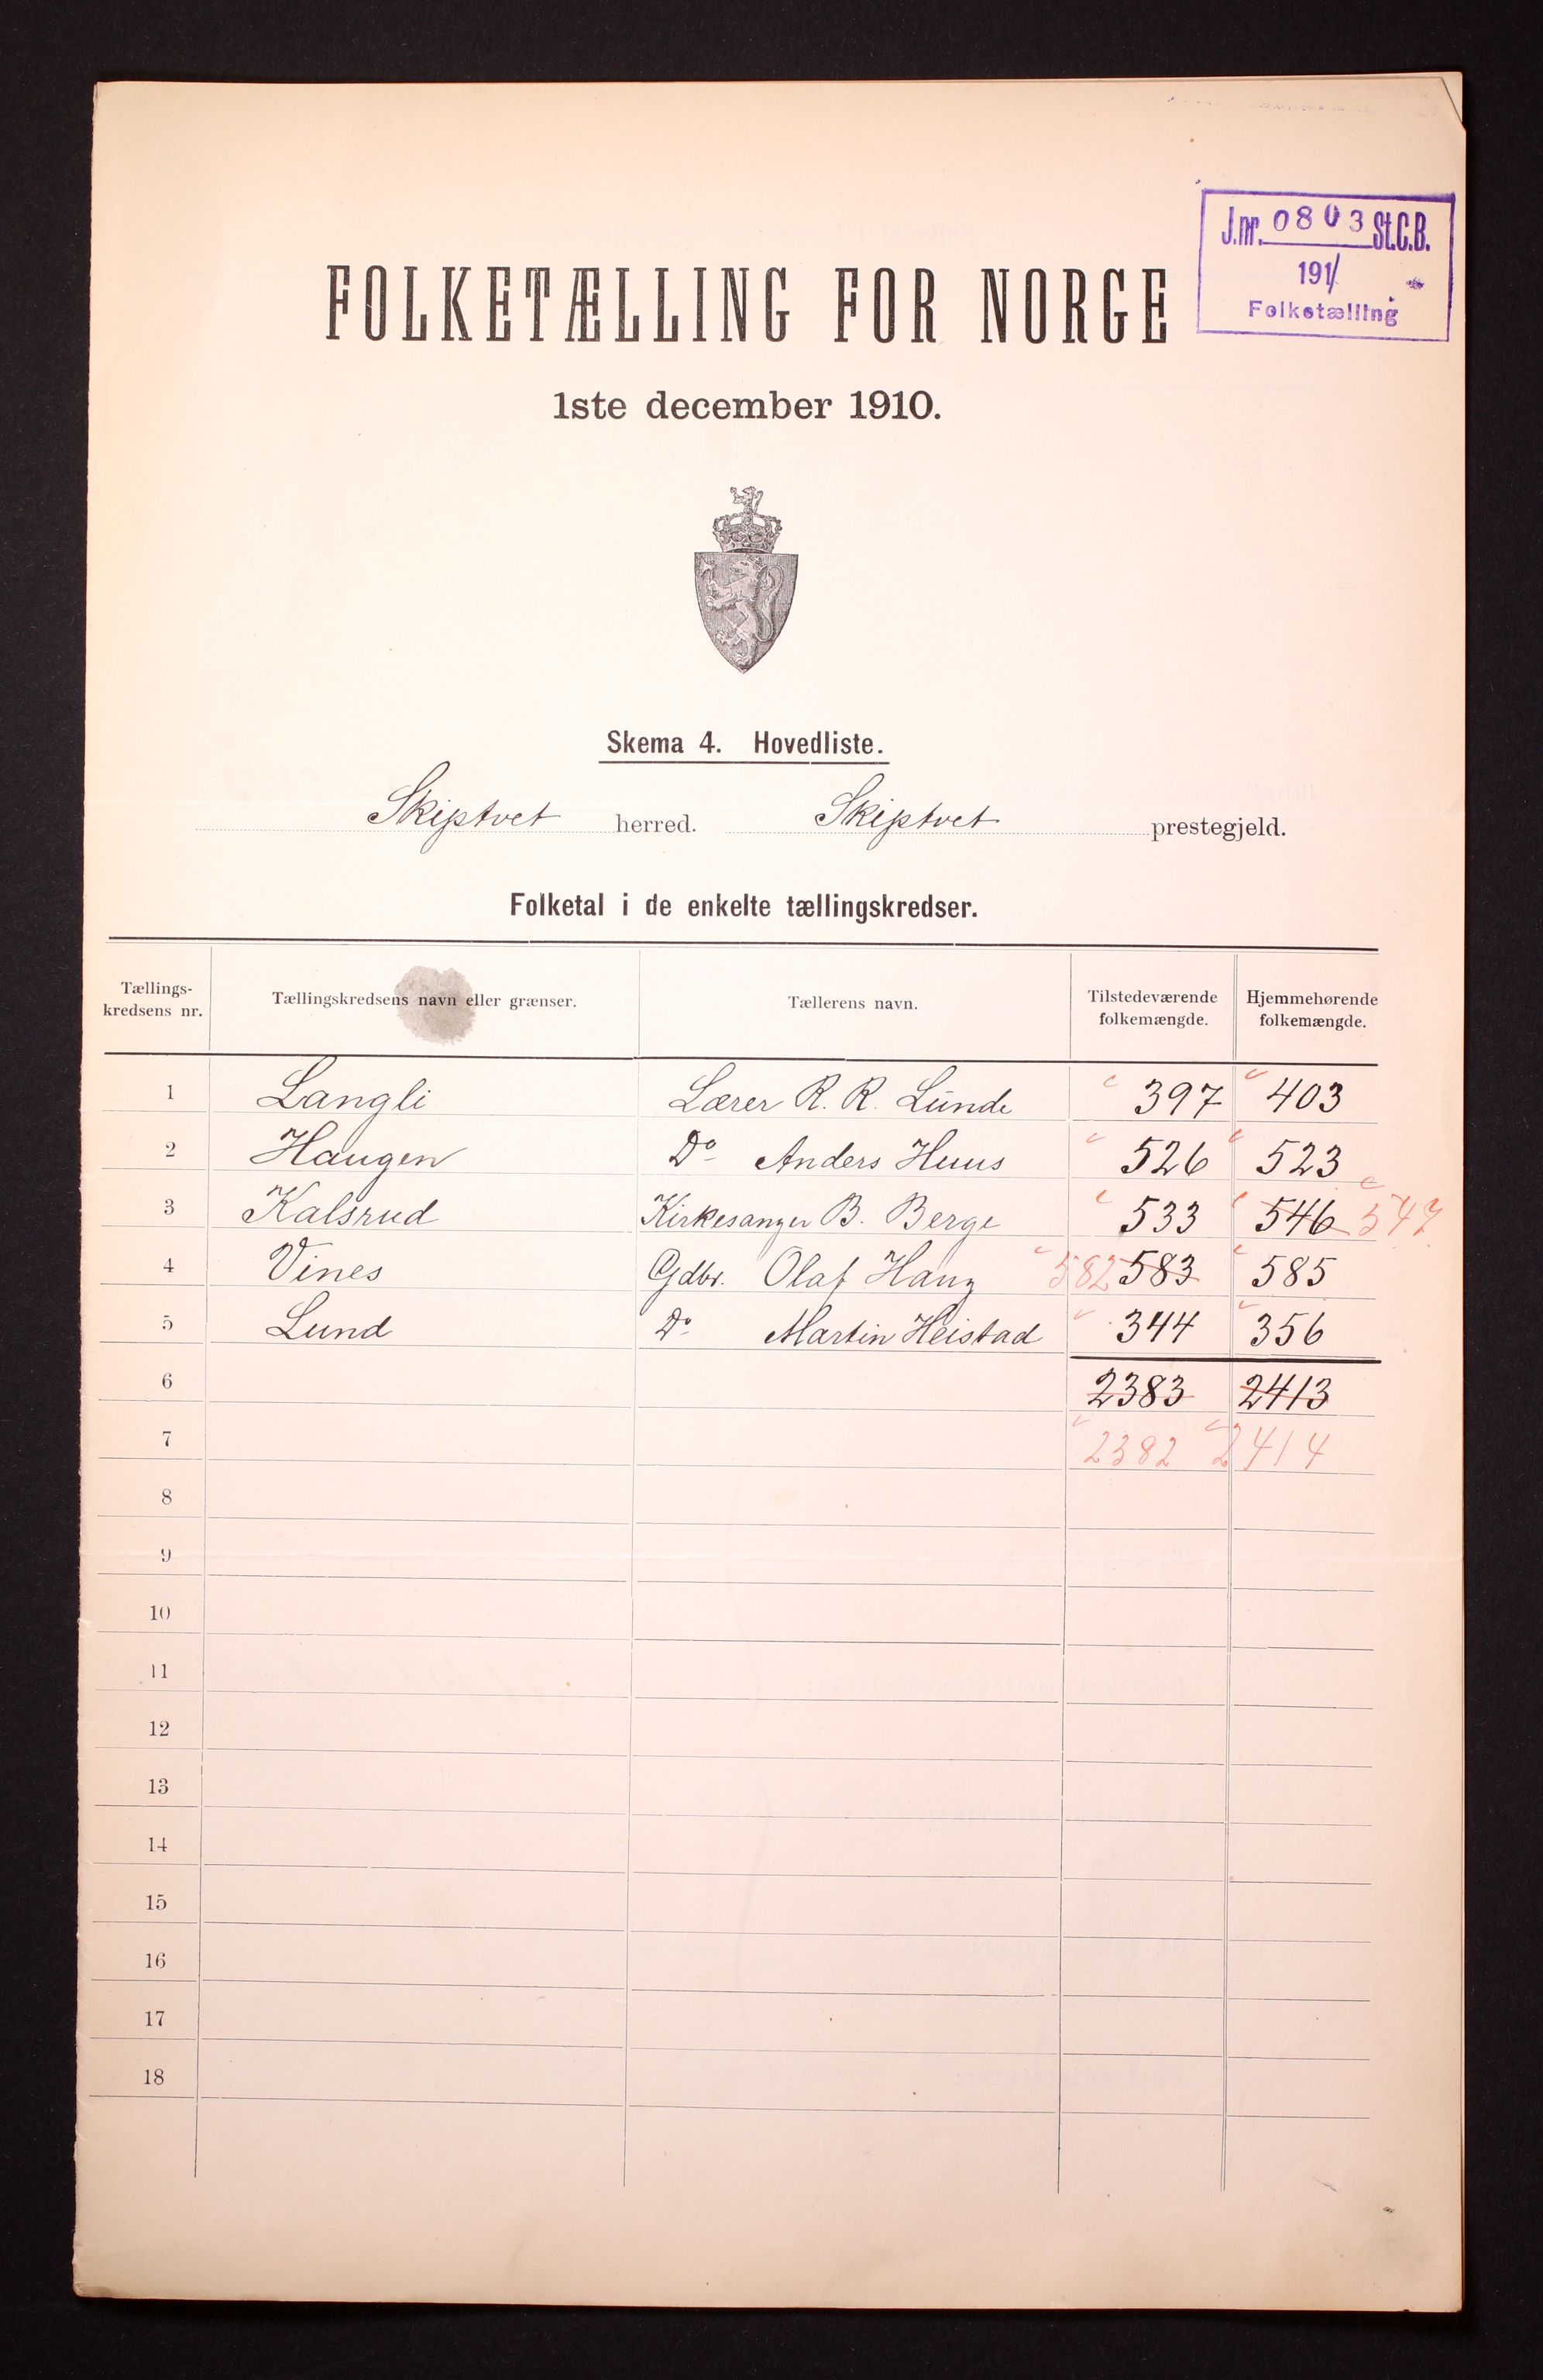 J.nr. 0803 St.C.B.
191/
Folketælling
FOLKETÆLLING FOR NORGE
1ste december 1910.
Skema 4. Hovedliste.
Skiptvet herred. Skiptvet prestegjeld.
Folketal i de enkelte tællingskredser.
Tællings-kredsens nr. Tællingskredsens navn eller grænser. Tællerens navn. Tilstedeværende folkemængde. Hjemmehørende folkemængde.
1 Langli Lærer R. R. Lunde 397 403
2 Haugen Do Anders Huus 526 523
3 Kalsrud Kirkesanger B. Berge 533 546 547
4 Vines Gdbr. Olaf Haug 582 583 585
5 Lund Do Martin Heistad 344 356
6 2383 2413
7 2382 2414
8
9
10
11
12
13
14
15
16
17
18